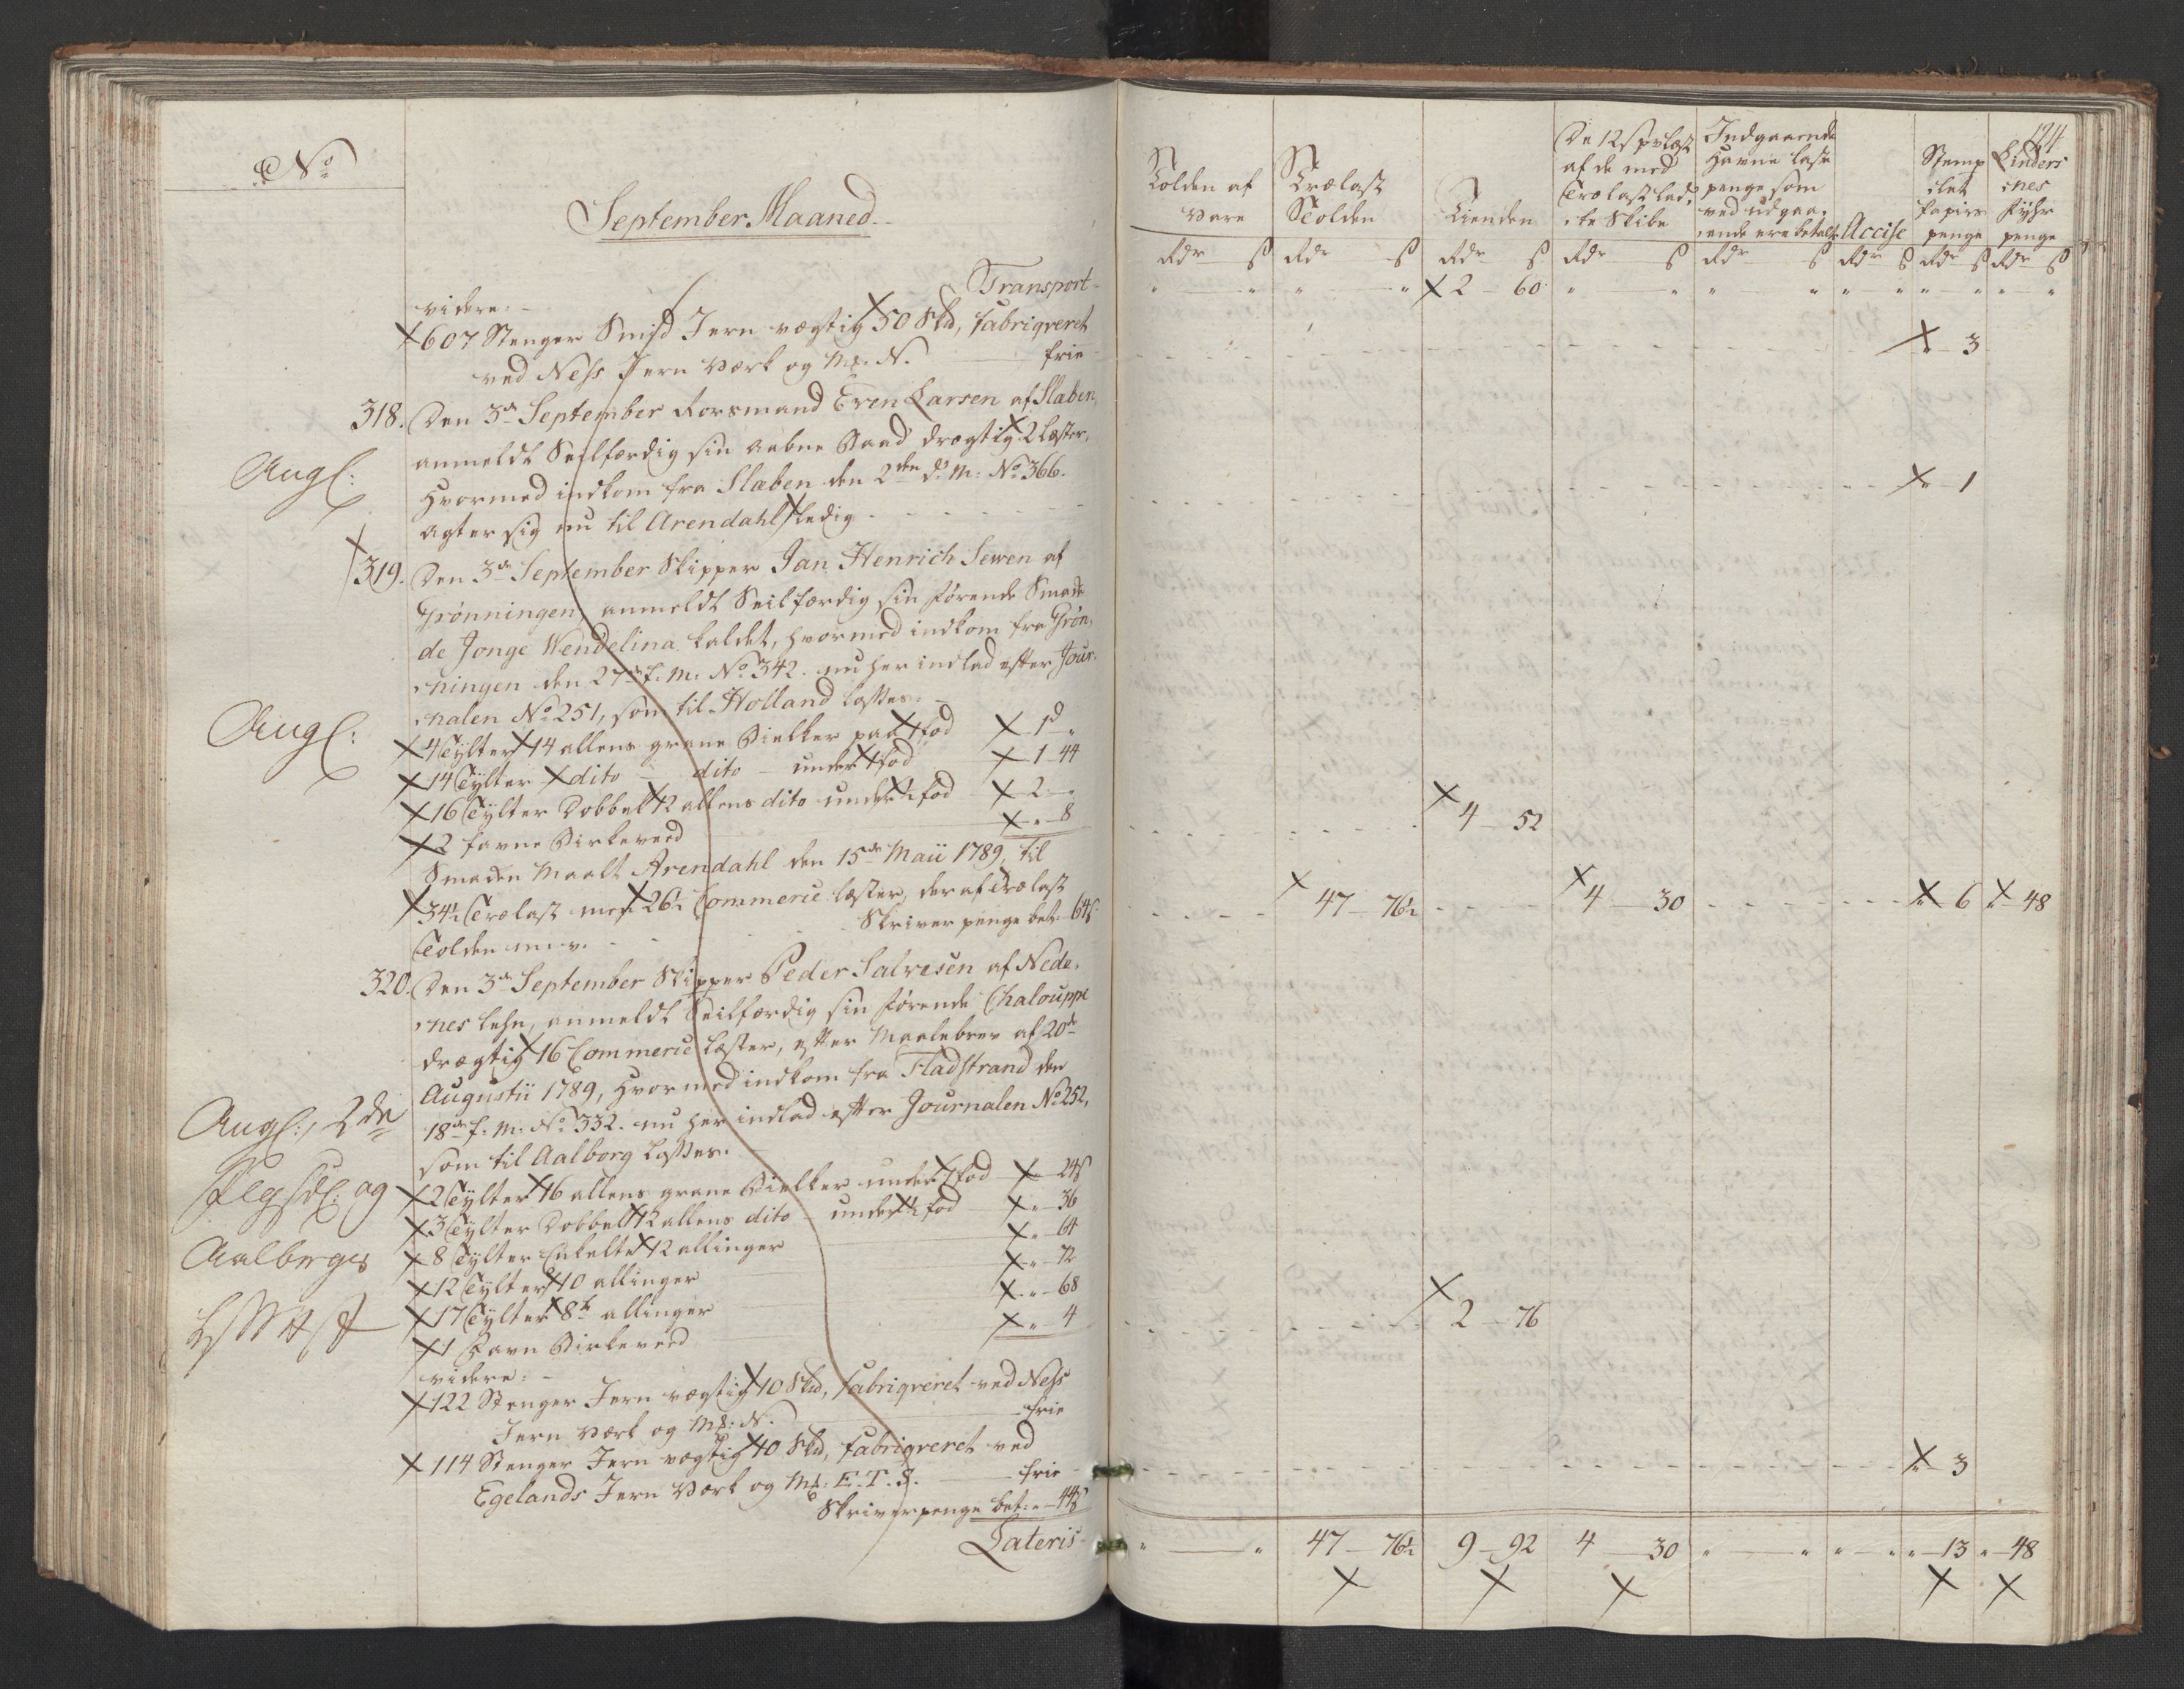 No
September Maaned.
Transport
videre:
607 Stenger Smid Jern vægtig 50 Skd, fabriqveret
ved Ness Jern Værk og Mk. N. frie
318. Den 3de September Rorsmand Even Larsen af Slaben,
anmeldt Seilfærdig sin aabne Baad drægtig 2 læster,
Hvormed indkom fra Slaben den 2den d: M: No 366.
Agter sig nu til Arendahl ledig
Angl:
319. Den 3de September Skipper Jan Henrich Sewen af
Grønningen, anmeldt Seilfærdig sin førende Smak
de Jonge Wendelina kaldet, hvormed indkom fra Grøn-
ningen den 27de f: M: No 342. nu her indlad efter Jour-
nalen No 251, som til Holland losses:
Angl:
4 Tylter 14 allens grane Bielker paa 1 fod 1 d
14 Tylter dito dito under 1 fod 1 44
16 Tylter Dobbel 12 allens dito under ½ fod 2
2 favne Birkeveed 8
Smaken Maalt Arendahl den 15de Maii 1789, til
34½ Trælast mest 26½ Commerce læster, der af Trælast
Tolden m: v. Skriver penge bet: 64 ß
320. Den 3de September Skipper Peder Salvesen af Nede-
nes Lehn, anmeldt Seilfærdig sin førende Chalouppe
drægtig 16 Commerce læster, efter Maalebrev af 20de
Augustii 1789, Hvormed indkom fra Fladstrand den
18de f: M: No 332. nu her indlad efter Journalen No 252,
som til Aalborg losses.
Angl:, 2de
og
Aalborgs
2 Tylter 16 allens grane Bielker under 1 fod 24 ß
3 Tylter Dobbel 12 allens dito under ½ fod 36
8 Tylter Enkelte 12 allinger 64
12 Tylter 10 allinger 72
17 Tylter 8te allinger 68
1 Favn Birkeveed 4
videre:
122 Stenger Jern vægtig 10 Skd, fabriqveret ved Ness
Jern Værk og Mk: N. frie
114 Stenger Jern vægtig 10 Skd, fabriqveret ved
Egelands Jern Værk og Mk: E. T. S. frie
Skriverpenge bet: 44 ß
Lateris
194
Tolden af Vare
Trælast Tolden
Tienden
De 12 ß pr læst af de med Trælast lad- te Skibe
Indgaaende Havne laste penge som ved udgaa- ende ere betalt
Accise
Stemp let Papirs penge
Linders nes Fyhr penge
Rdr ß Rdr ß Rdr ß Rdr ß Rdr ß Rdr ß Rdr ß Rdr ß
2 60
3
1
4 52
47 76½ 4 30 6 48
2 76
3
47 76½ 9 92 4 30 13 48